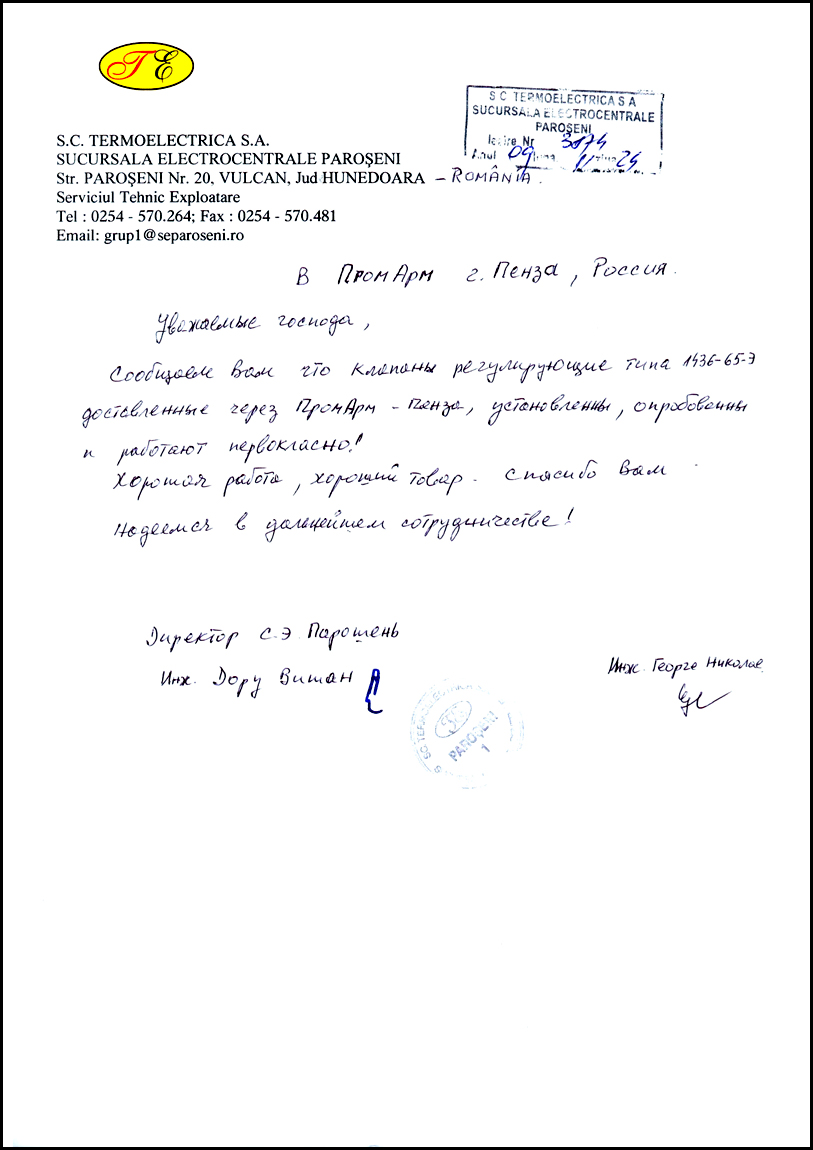 TE
S.C. TERMOELECTRICA S.A.
SUCURSALA ELECTROCENTRALE PAROŞENI
Str. PAROŞENI Nr. 20, VULCAN, Jud HUNEDOARA – ROMÂNIA.
Serviciul Tehnic Exploatare
Tel : 0254 - 570.264; Fax : 0254 - 570.481
Email: grup1@separoseni.ro
S C TERMOELECTRICA S A
SUCURSALA ELECTROCENTRALE
PAROŞENI
Ieşire Nr 3174
Anul 09 luna 11 ziua 24
В ПромАрм г. Пенза, Россия.
Уважаемые господа,
Сообщаем Вам что клапаны регулирующие типа 1436-65-Э
доставленные через ПромАрм - Пенза, установленны, опробованны
и работают первокласно!
Хорошая работа, хороший товар. Спасибо Вам.
Надеемся в дальнейшем сотрудничестве!
Директор С.Э. Парошень
Инж. Дору Витан
Инж. Георге Николае
SC TERMOELECTRICA
PAROŞENI
1